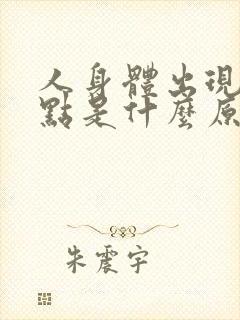 人身體出現
點是什麼原
朱震宇